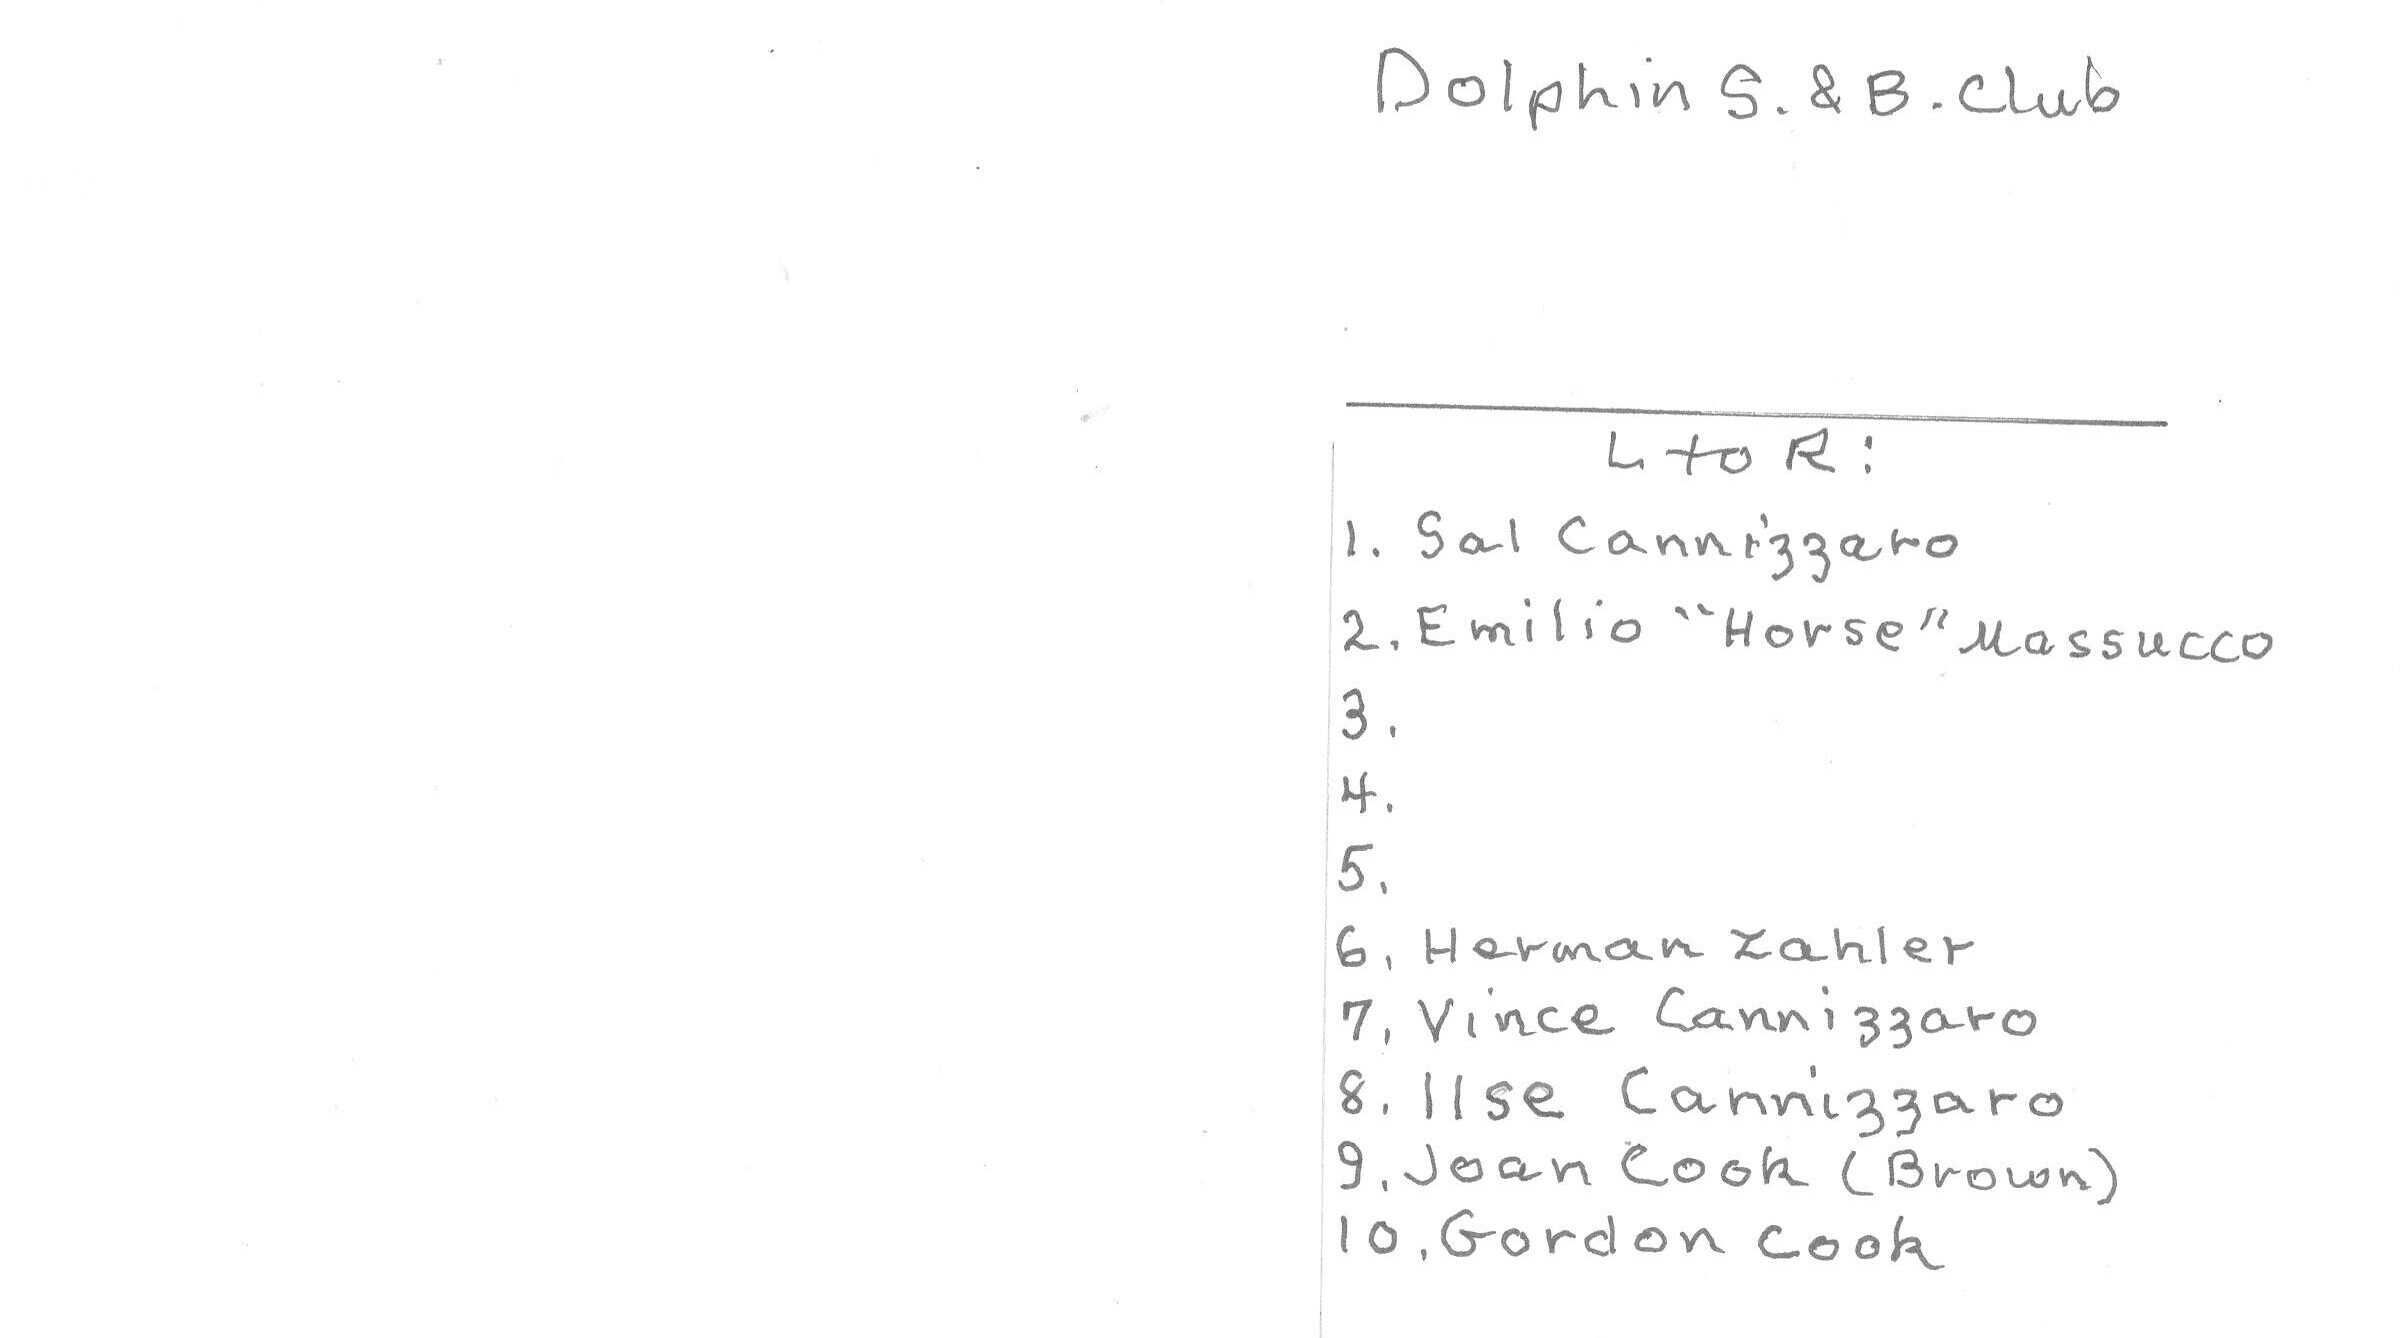 Dolphin S. & B. Club
L to R:
1. Sal Cannizzaro
2. Emilio "Horse" Massucco
3.
4.
5.
6. Herman Zahler
7. Vince Cannizzaro
8. Ilse Cannizzaro
9. Joan Cook (Brown)
10. Gordon Cook